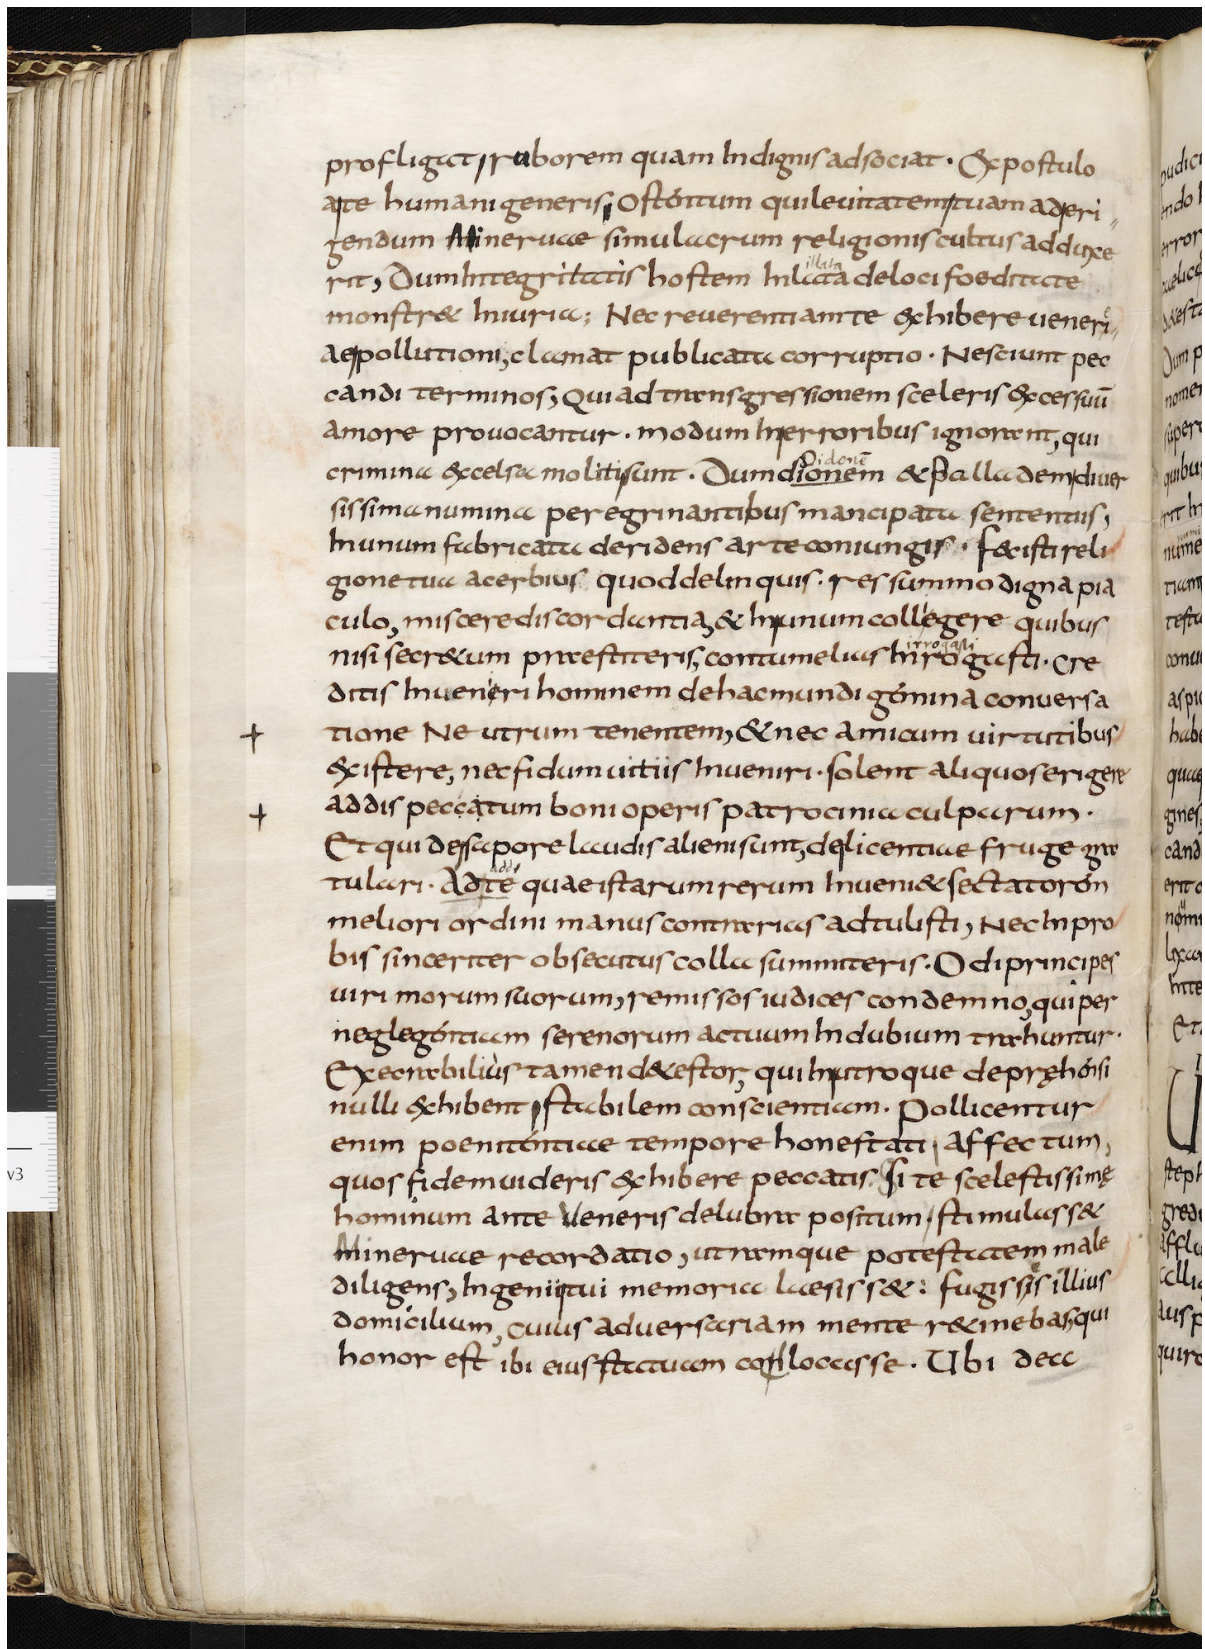 profligat, ruborem quam Indignis adsociat. Expostulo
a te humani generis, Ostentum qui leuitatem tuam ad eri
gendum Mineruae simulacrum religionis cultus adduxe
rit, Dum Integritatis hostem Inlata de loci foeditate
illata
monstret Iniuria; Nec reuerentiam te exhibere ueneri,
ae pollutioni, clamat publicata corruptio. Nesciunt pec
candi terminos, Qui ad transgressionem sceleris excessuū
amore prouocantur. modum In erroribus ignorant, qui
crimina excelsa moliti sunt. Dum dionem & Palladem, diuer
Didonē
sissima numina peregrinantibus mancipata sententiis,
In unum fabricata deridens arte coniungis. Fecisti reli
gione tua acerbius quod delinquis. res summo digna pia
culo, miscere discordantia, & In unum collegere quibus
nisi secretum praestiteris, contumelias Inrogasti. Cre
irrogasti
ditis Inueneri hominem de hac mundi gemina conuersa
+ tione Neutrum tenentem, & nec amicum uirtutibus
existere, nec fidum uitiis Inueniri. solent aliquos erigere
+ addis peccatum boni operis patrocinia culparum.
Et qui de sapore laudis alieni sunt, de licentiae fruge gra
tulari. Ad te quae istarum rerum Inueni& sectatorem
addi
meliori ordini manus contrarias adtulisti, Nec In pro
bis sinceriter obsecutus colla summiteris. Odi principes
uiri morum suorum, remissos iudices condemno, qui per
neglegentiam serenorum actuum In dubium trahuntur.
Execrabilius tamen detestor, qui In utroque depręhensi
nulli exhibent stabilem conscientiam. Pollicentur
enim poenitentiae tempore honestati, affectum,
quos fidem uideris exhibere peccatis. Si te scelestissimę
hominum ante Ueneris delubra positum, stimulasset
Mineruae recordatio, utramque potestatem male
diligens, Ingenii tui memoria laesisset: fugissis illius
domicilium, cuius aduersariam mente retinebas, qui
honor est ibi eius statuam conlocasse. Ubi deca